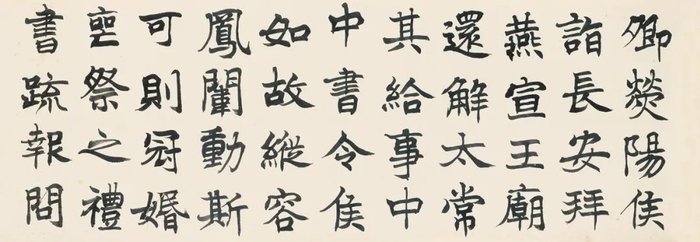 卿熒陽侯
詣長安拜
燕宣王廟
還解太常
其給事中
中書令侯
如故縱容
鳳闈動斯
可則冠婚
喪祭之禮
書疏報問